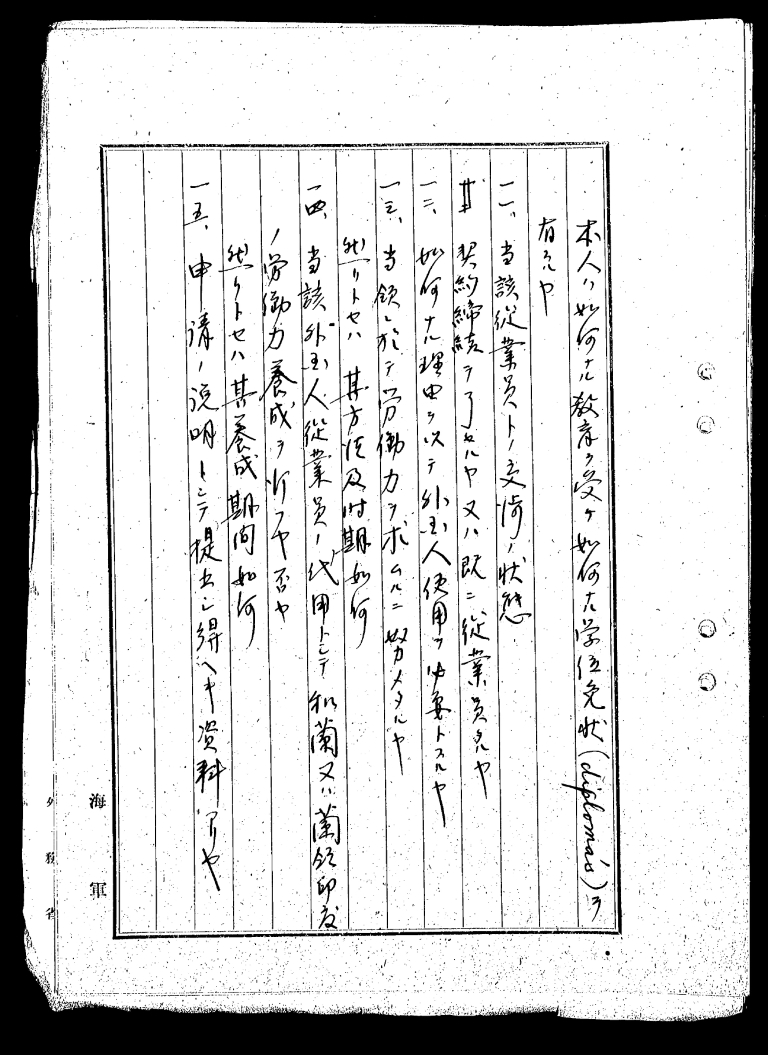 本人ハ如何ナル教育ヲ受ケ如何ナル学位免状(diploma's)ヲ
有スルヤ
一一、当該従業員トノ交渉ノ状態
契約締結ヲ了セルヤ又ハ既ニ従業員タルヤ
一二、如何ナル理由ヲ以テ外国人使用ヲ必要トスルヤ
一三、当領ニ於テ労働力ヲ求ムルニ努力メタルヤ
然リトセハ其方法及時期如何
一四、当該外国人従業員ノ代用トシテ和蘭又ハ蘭領印度
ノ労働力養成ヲ行フヤ否ヤ
然リトセハ其養成期間如何
一五、申請ノ説明トシテ提出シ得ヘキ資料アリヤ
海軍
外務省